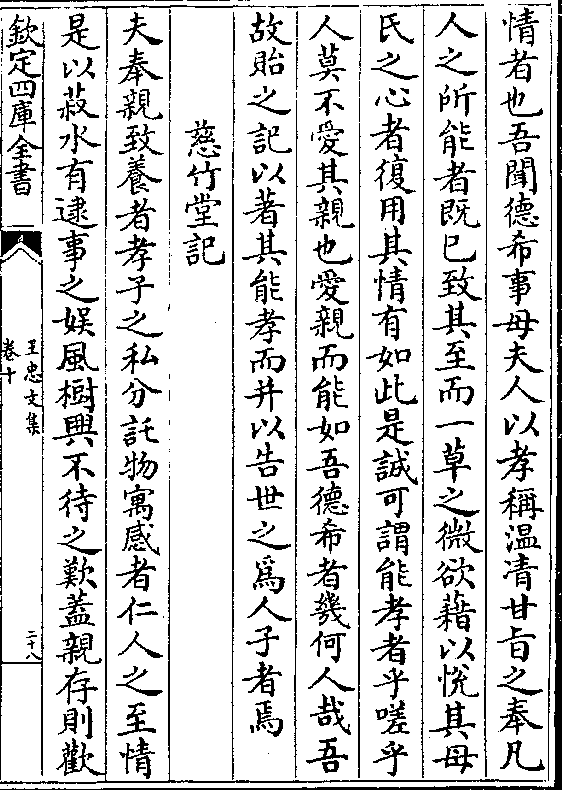 情者也吾聞德希事母夫人以孝稱温凊甘㫖之奉凡
人之所能者既已致其至而一草之微欲藉以悦其母
氏之心者復用其情有如此是誠可謂能孝者乎嗟乎
人莫不愛其親也愛親而能如吾德希者幾何人哉吾
故貽之記以著其能孝而并以告世之爲人子者焉
慈竹堂記
夫奉親致養者孝子之私分託物寓感者仁人之至情
是以菽水有逮事之娱風樹興不待之歎蓋親存則歡
欽定四庫全書
王忠文集
卷十
二十八